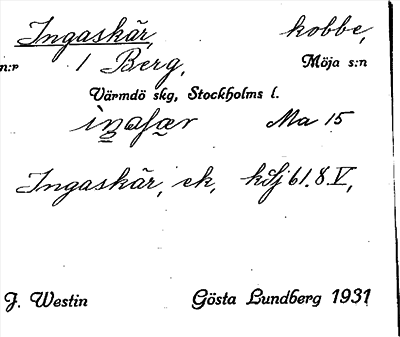 Ingaskär, kobbe,
n:r 1 Berg, Möja s:n
Värmdö skg, Stockholms l.
Ma 15
Ingaskär, ek, kSj 61.8.V,
J. Westin Gösta Lundberg 1931